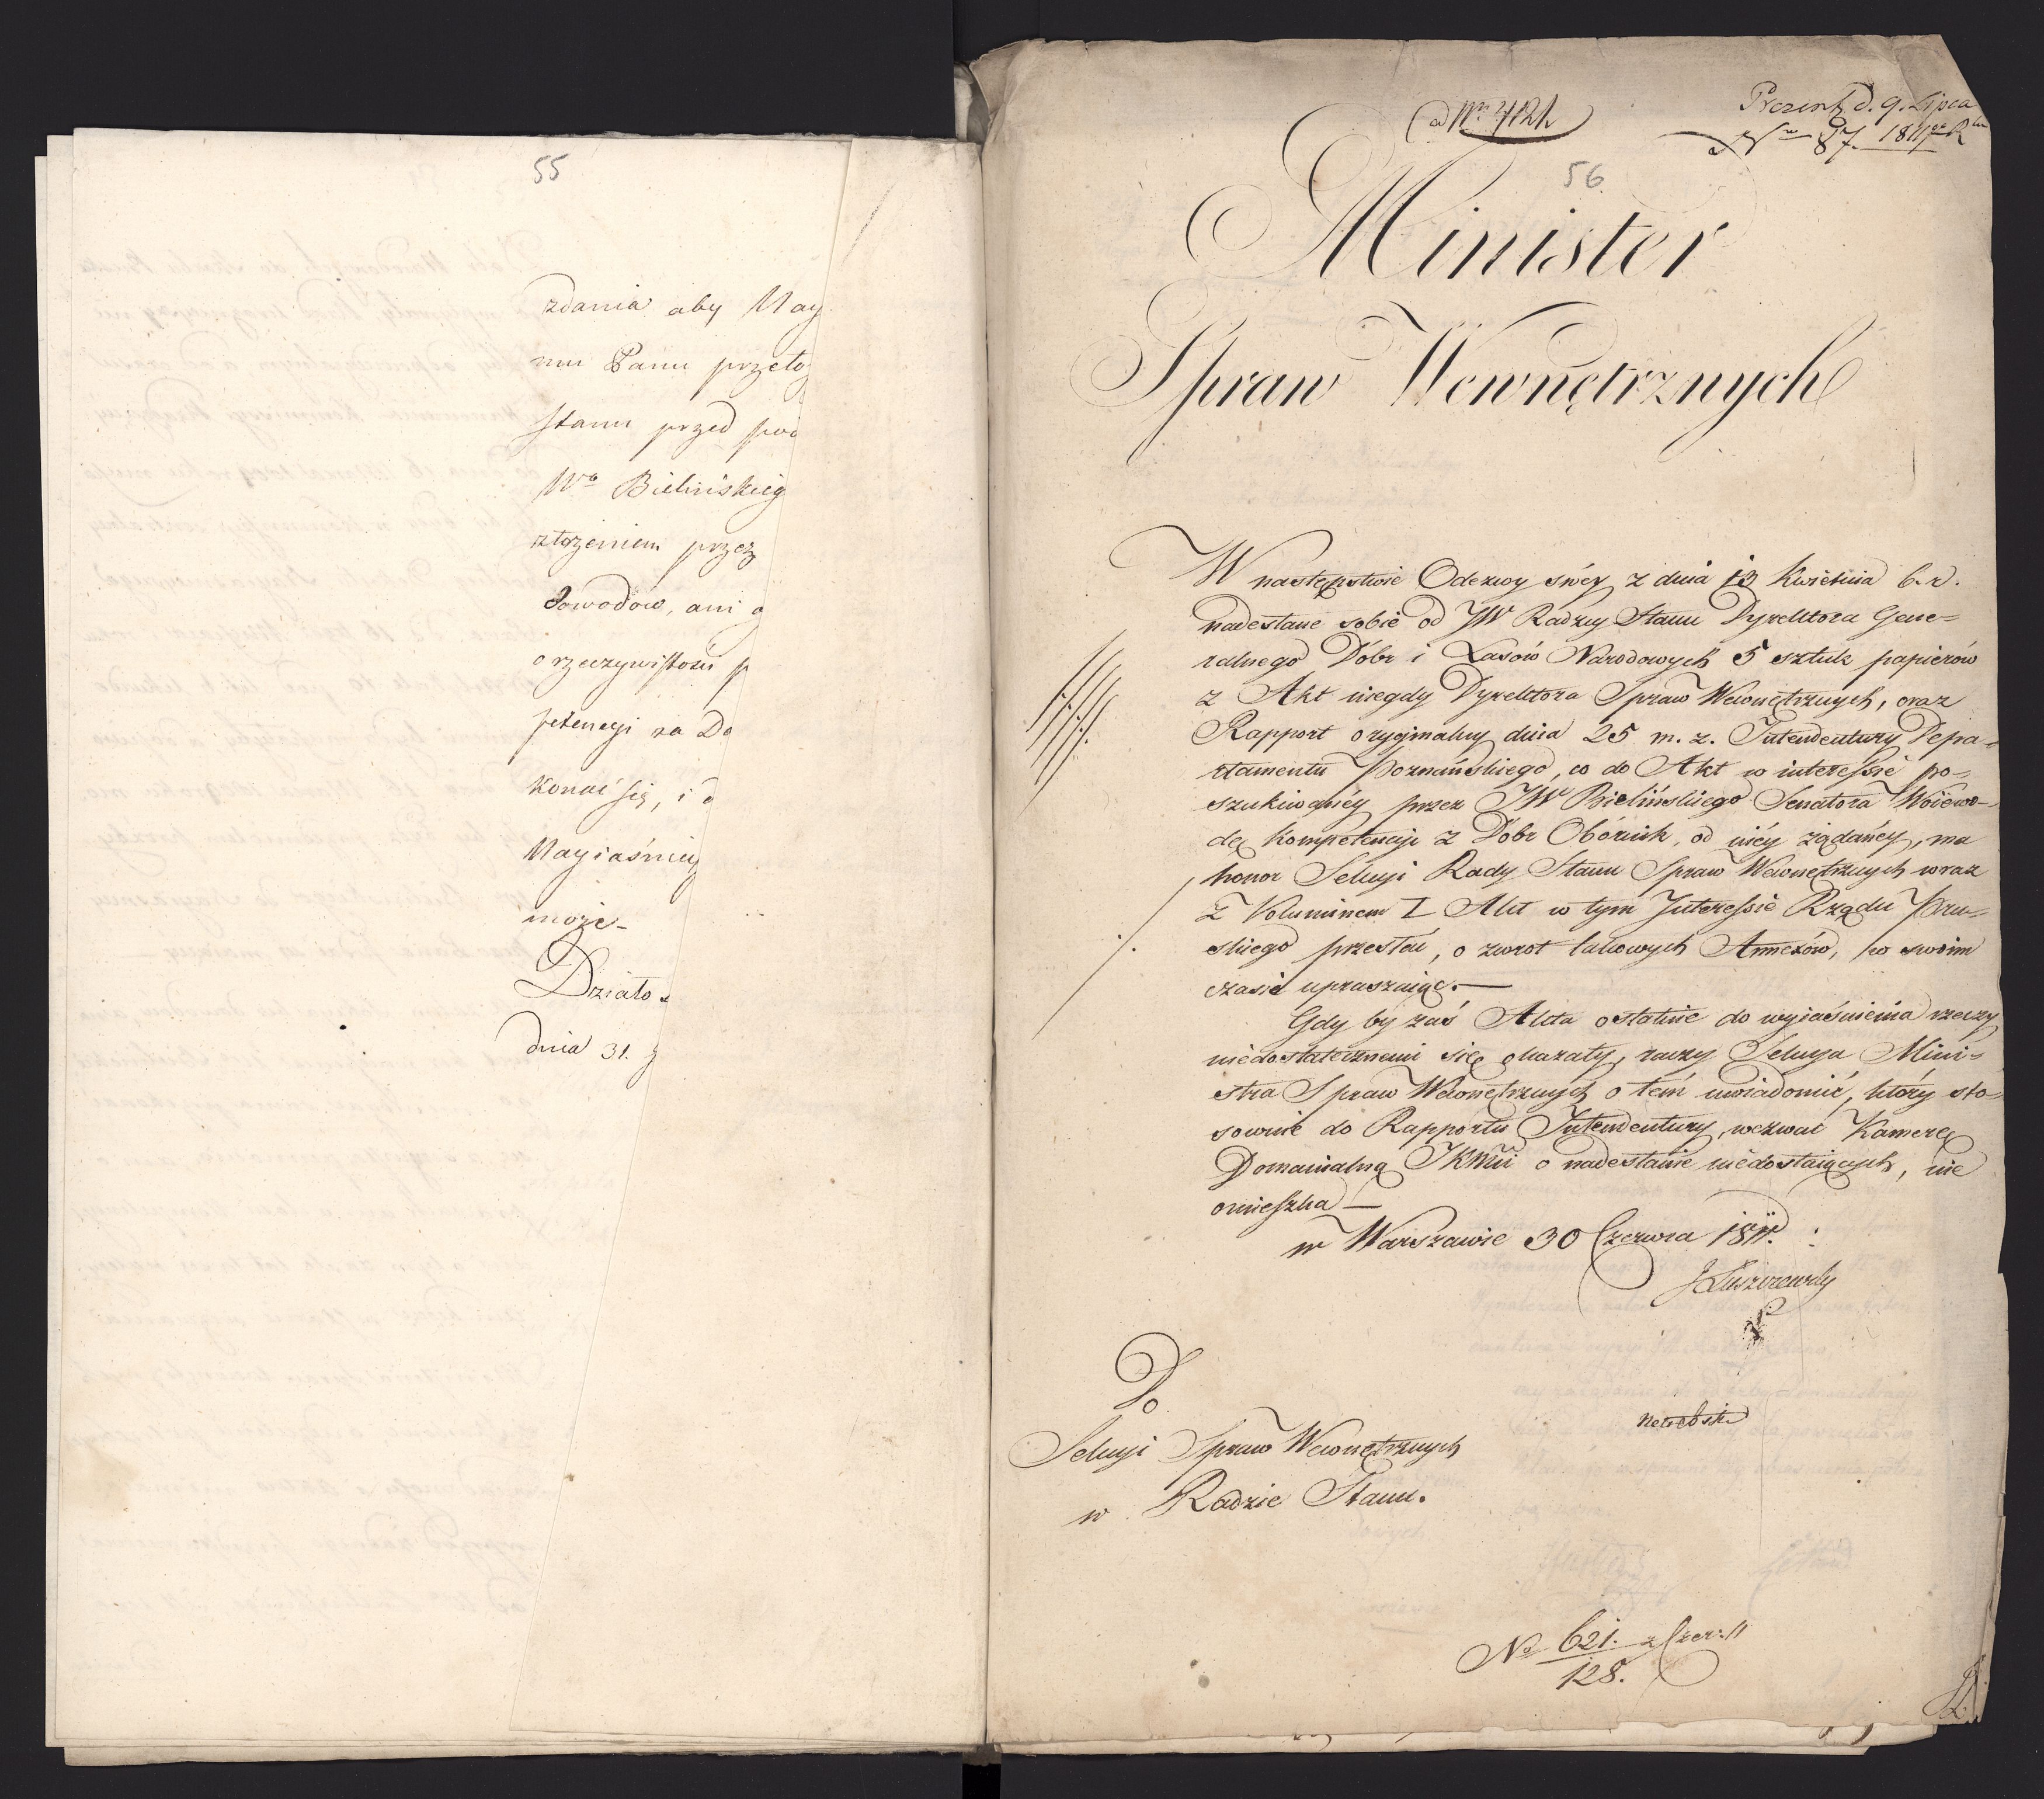 55
zdania aby Nay
mu Panu przeło
stanu przed
Wo Bielińskieg
złożeniem przez
dowodów, ani
o rzeczywistości p
petencyi za Do
konać się, i
Nayiaśniey
może
Działo
dnia 31.
Prezent d. 9. Lipca
87. 1811
56
Minister
Spraw Wewnętrznych
W następstwie Odezwy swéy z dnia 13 Kwietnia b. r.
nadesłane sobie od JW Radzcy Stanu Dyrektora Gene-
ralnego Dóbr i Lasów Narodowych 5 sztuk papierów
z Akt niegdy Dyrektora Spraw Wewnętrznych, oraz
Rapport oryginalny dnia 25 m. z. Intendentury Depa-
rtamentu Poznańskiego, co do Akt w interessie po-
szukiwanéy przez JW Bielińskiego Senatora Woiewo-
dę kompetencyi z Dóbr Obórnik, od niéy żądanéy, ma
honor Sekcyi Rady Stanu Spraw Wewnętrznych wraz
z Voluminem I Akt w tym Interessie Rządu Pru-
skiego przesłać, o zwrot takowych Annexów, w swoim
czasie upraszaiąc.—
Gdy by zaś Akta ostatnie do wyiaśnienia rzeczy
niedostatecznemi się okazały, raczy Sekcya Mini-
stra Spraw Wewnętrznych o tem uwiadomić, który sto-
sownie do Rapportu Intendentury, wezwać Kamerę
Domainalną JKMci o nadesłanie niedostaiących, nie
omieszka —
w Warszawie 30 Czerwca 1811.
J Łuszczewsky
Do
Sekcyi Spraw Wewnętrznych
w Radzie Stanu.
No 621. z Czer: 11
128.